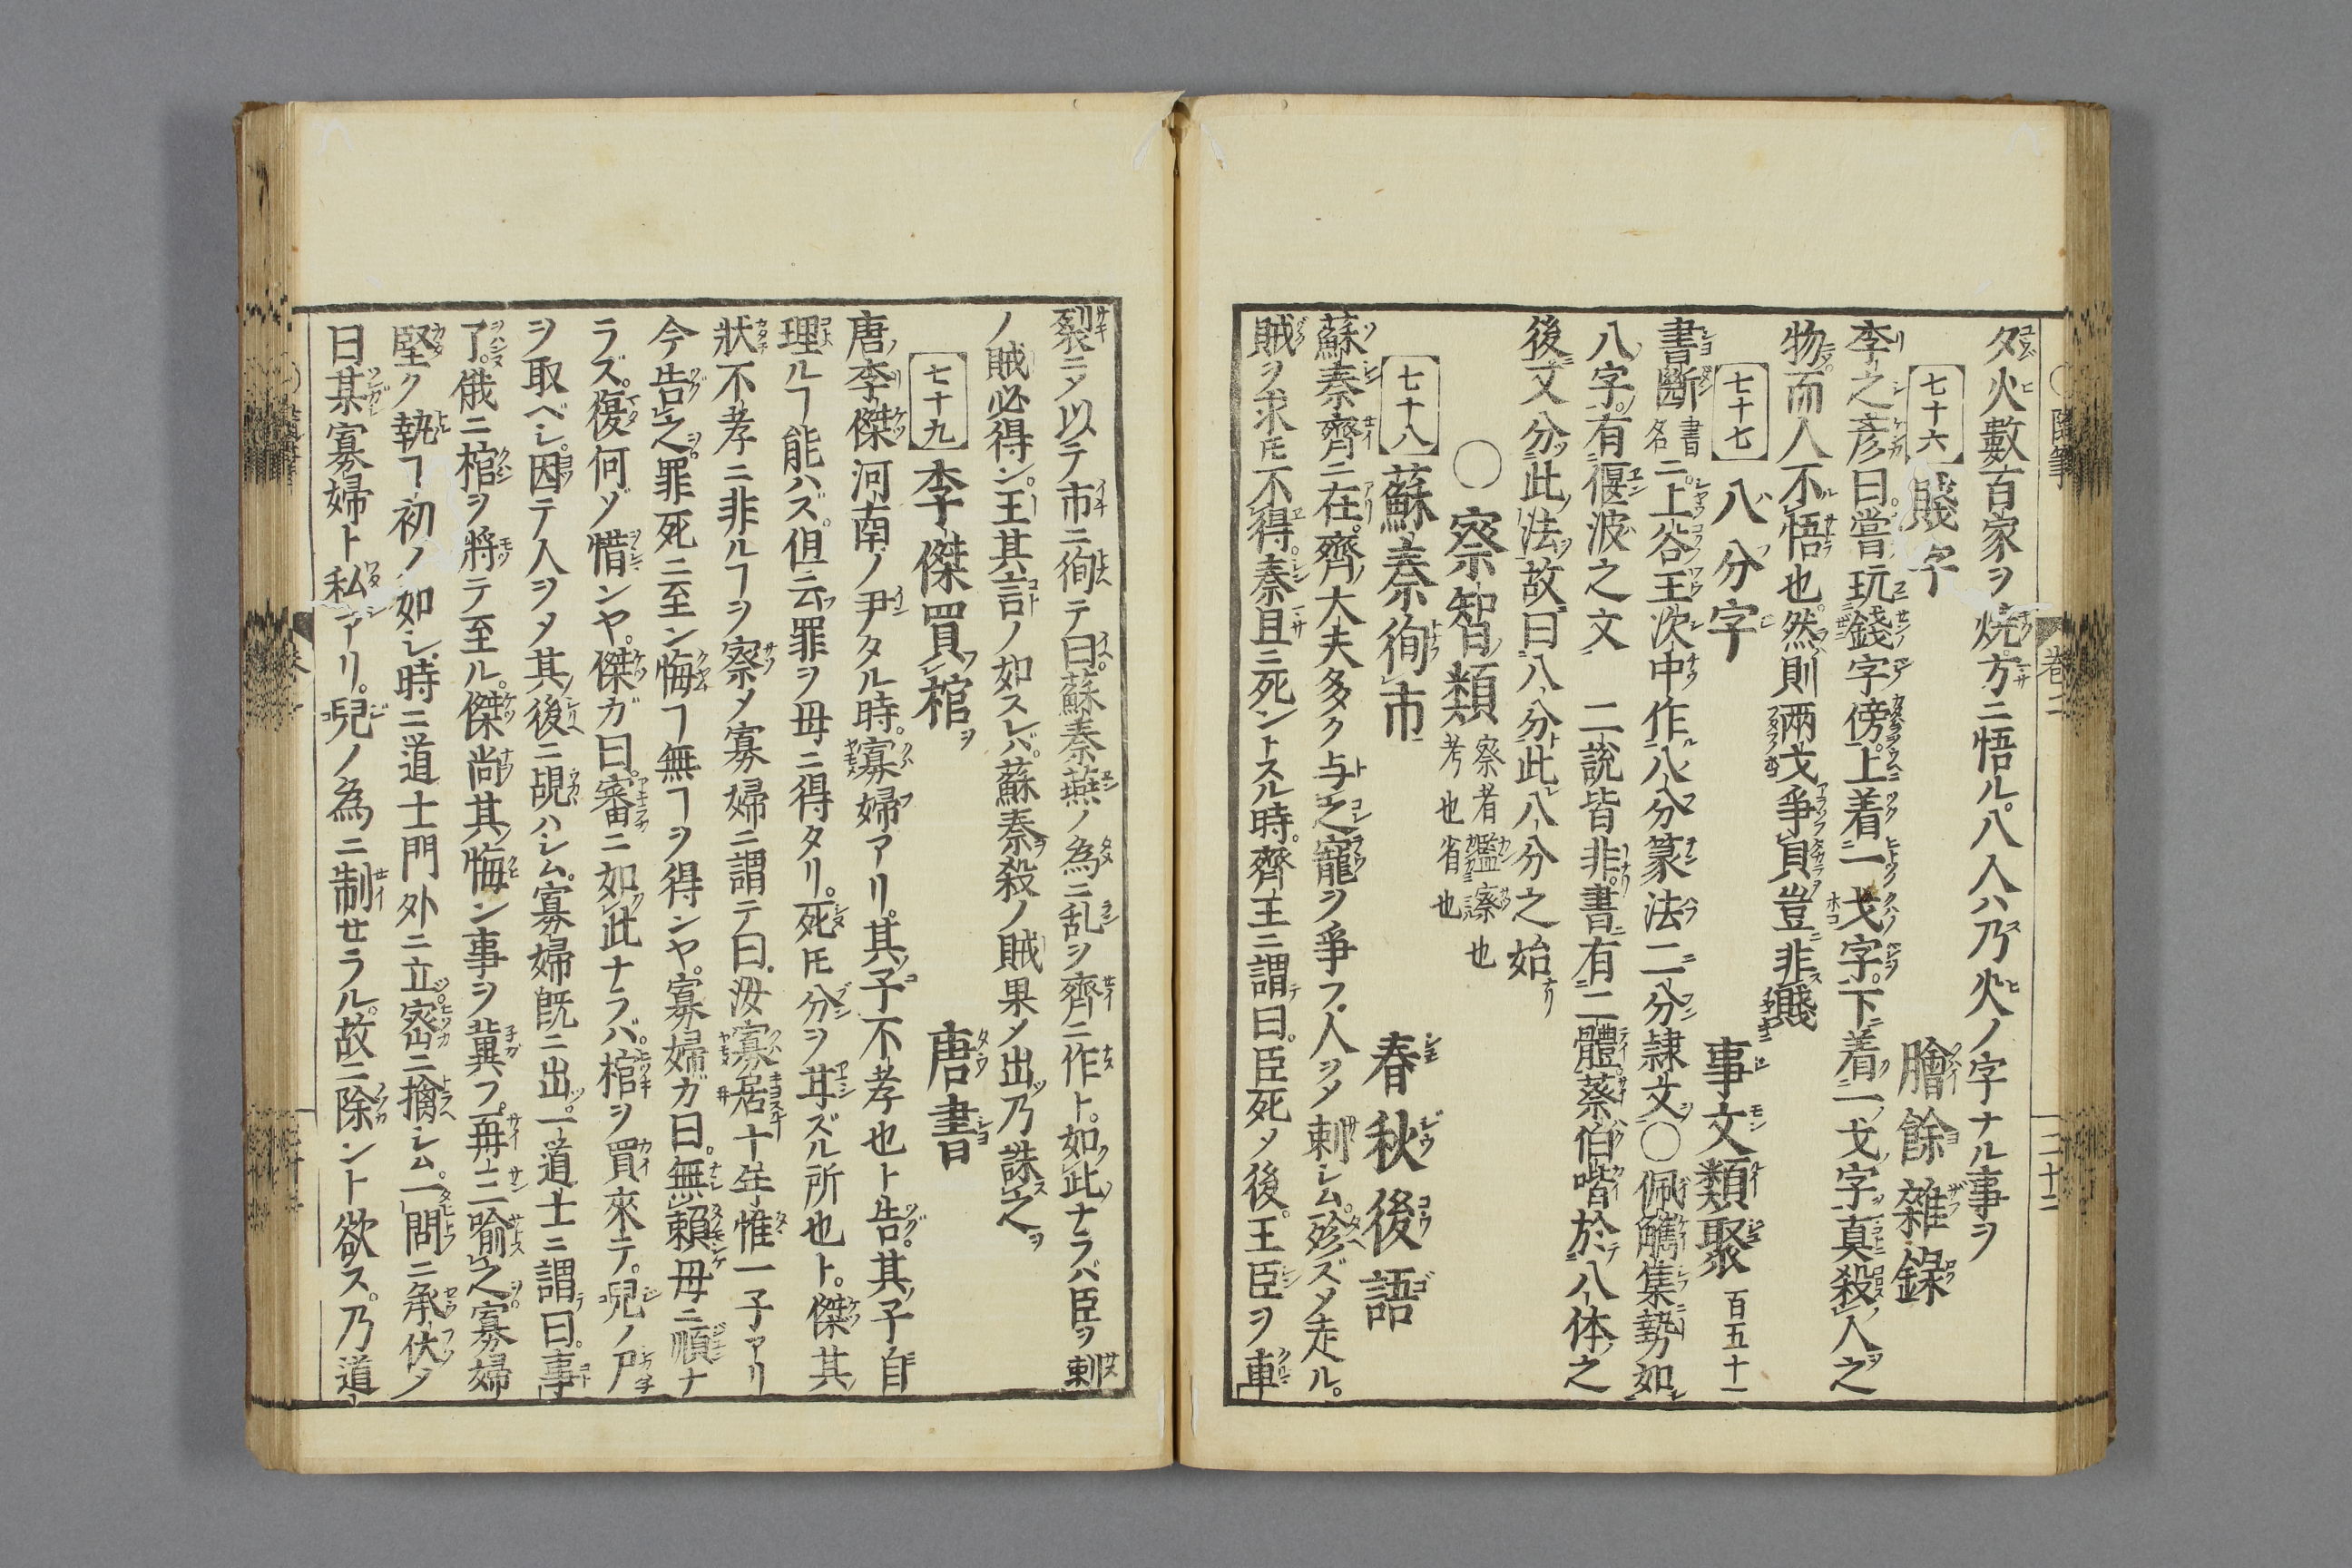 夕火數百家ヲ焼方ニ悟ル八人ハ乃火ノ字ナル事ヲ
七十六 賤字 膾餘雜録
李之彦曰嘗玩錢字傍上着一戈字下着一戈字真殺人之
物而人不悟也然則兩戈爭貝豈非賤
七十七 八分字 事文類聚 百五十一
書斷書名ニ上谷王次中作八分篆法二分隷文〇佩觿集勢如
八字有偃波之文 二說皆非書有二體蔡伯喈於八体之
後又分此法故曰八分此八分之始
〇察智類 察者鑑察也 考也省也
七十八 蘇秦徇市 春秋後語
蘇秦齊ニ在齊大夫多ク与之寵ヲ爭フ人ヲメ刺シム殄ズメ走ル
賊ヲ求圧不得秦且ニ死ントスル時齊王ニ謂曰臣死メ後王臣ヲ車
裂ニメ以テ市ニ徇テ曰蘇秦燕ノ為ニ乱ヲ齊ニ作ト如此ナラバ臣ヲ刺
ノ賊必得ン王其言ノ如スレバ蘇秦殺ノ賊果メ出乃誅之
七十九 李傑買棺 唐書
唐李傑河南ノ尹タル時寡婦アリ其子不孝也ト告其子自
理ルヿ能ハズ但云罪ヲ母ニ得タリ死圧分ヲ甘ズル所也ト傑其
狀不孝ニ非ルヿヲ察メ寡婦ニ謂テ曰汝寡居十年惟一子アリ
今告之罪死ニ至ン悔ヿ無ヿヲ得ンヤ寡婦ガ曰無賴母ニ順ナ
ラズ復何ゾ惜ンヤ傑ガ曰審ニ如此ナラバ棺ヲ買來テ兒ノ尸
ヲ取ベシ因テ人ヲメ其後ニ覘ハシム寡婦既ニ出一道士ニ謂曰事
了俄ニ棺ヲ將テ至ル傑尚其悔ン事ヲ冀フ再三喩之寡婦
堅ク執ヿ初ノ如シ時ニ道士門外ニ立密ニ擒シム一問ニ承伏メ
曰某寡婦ト私アリ兒ノ為ニ制セラル故ニ除ント欲ス乃道